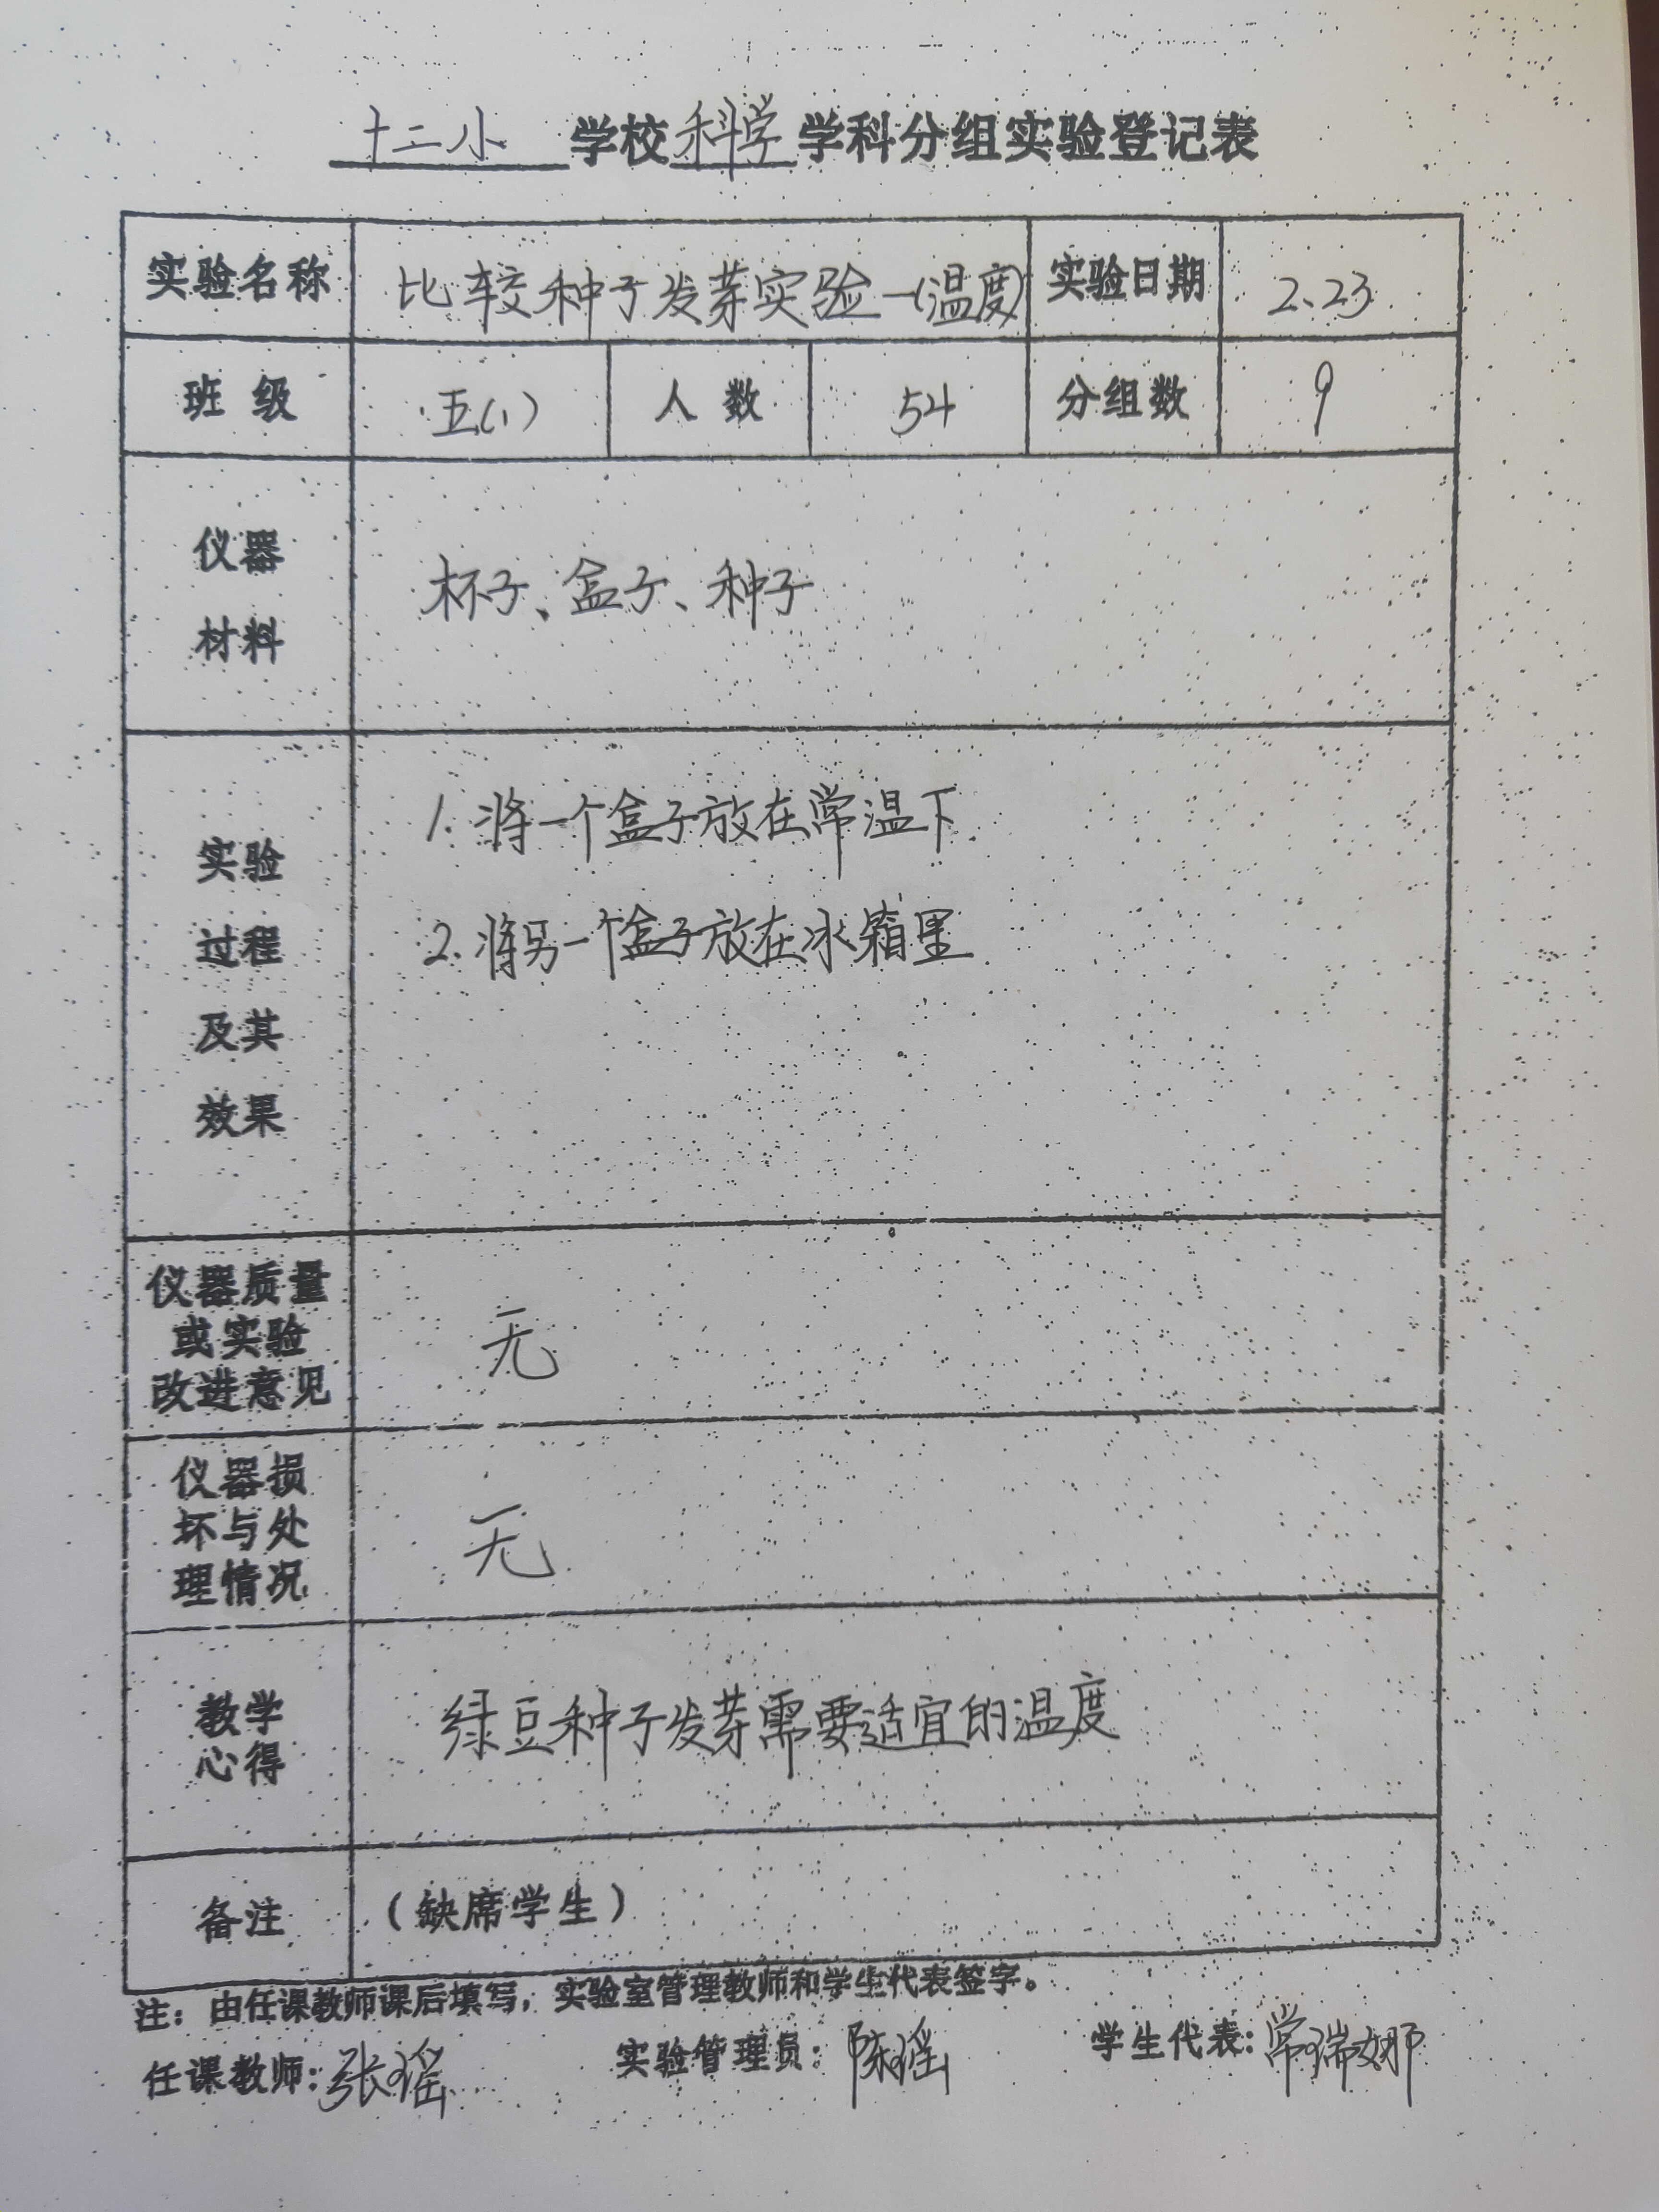 十二小 学校 科学 学科分组实验登记表
实验名称 比较种子发芽实验一(温度) 实验日期 2.23
班 级 五(1) 人 数 54 分组数 9
仪器
材料
杯子、盒子、种子
实验
过程
及其
效果
1. 将一个盒子放在常温下
2. 将另一个盒子放在冰箱里
仪器质量
或实验
改进意见
无
仪器损
坏与处
理情况
无
教学
心得
绿豆种子发芽需要适宜的温度
备注 (缺席学生)
注：由任课教师课后填写，实验室管理教师和学生代表签字。
任课教师:张瑶 实验管理员:陈瑶 学生代表:常瑞娜